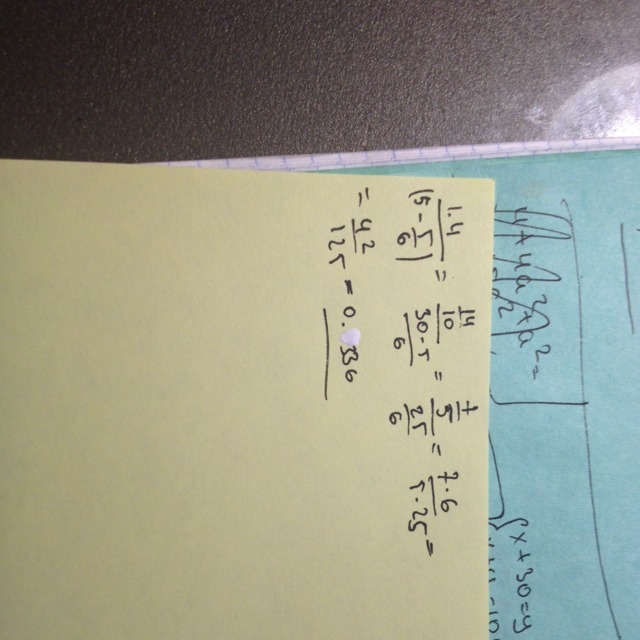 1.4/(5-5/6) = 14/10/(30-5/6) = 7/5/(25/6) = 7·6/5·25 =
= 42/125 = 0.336
{x+30=y